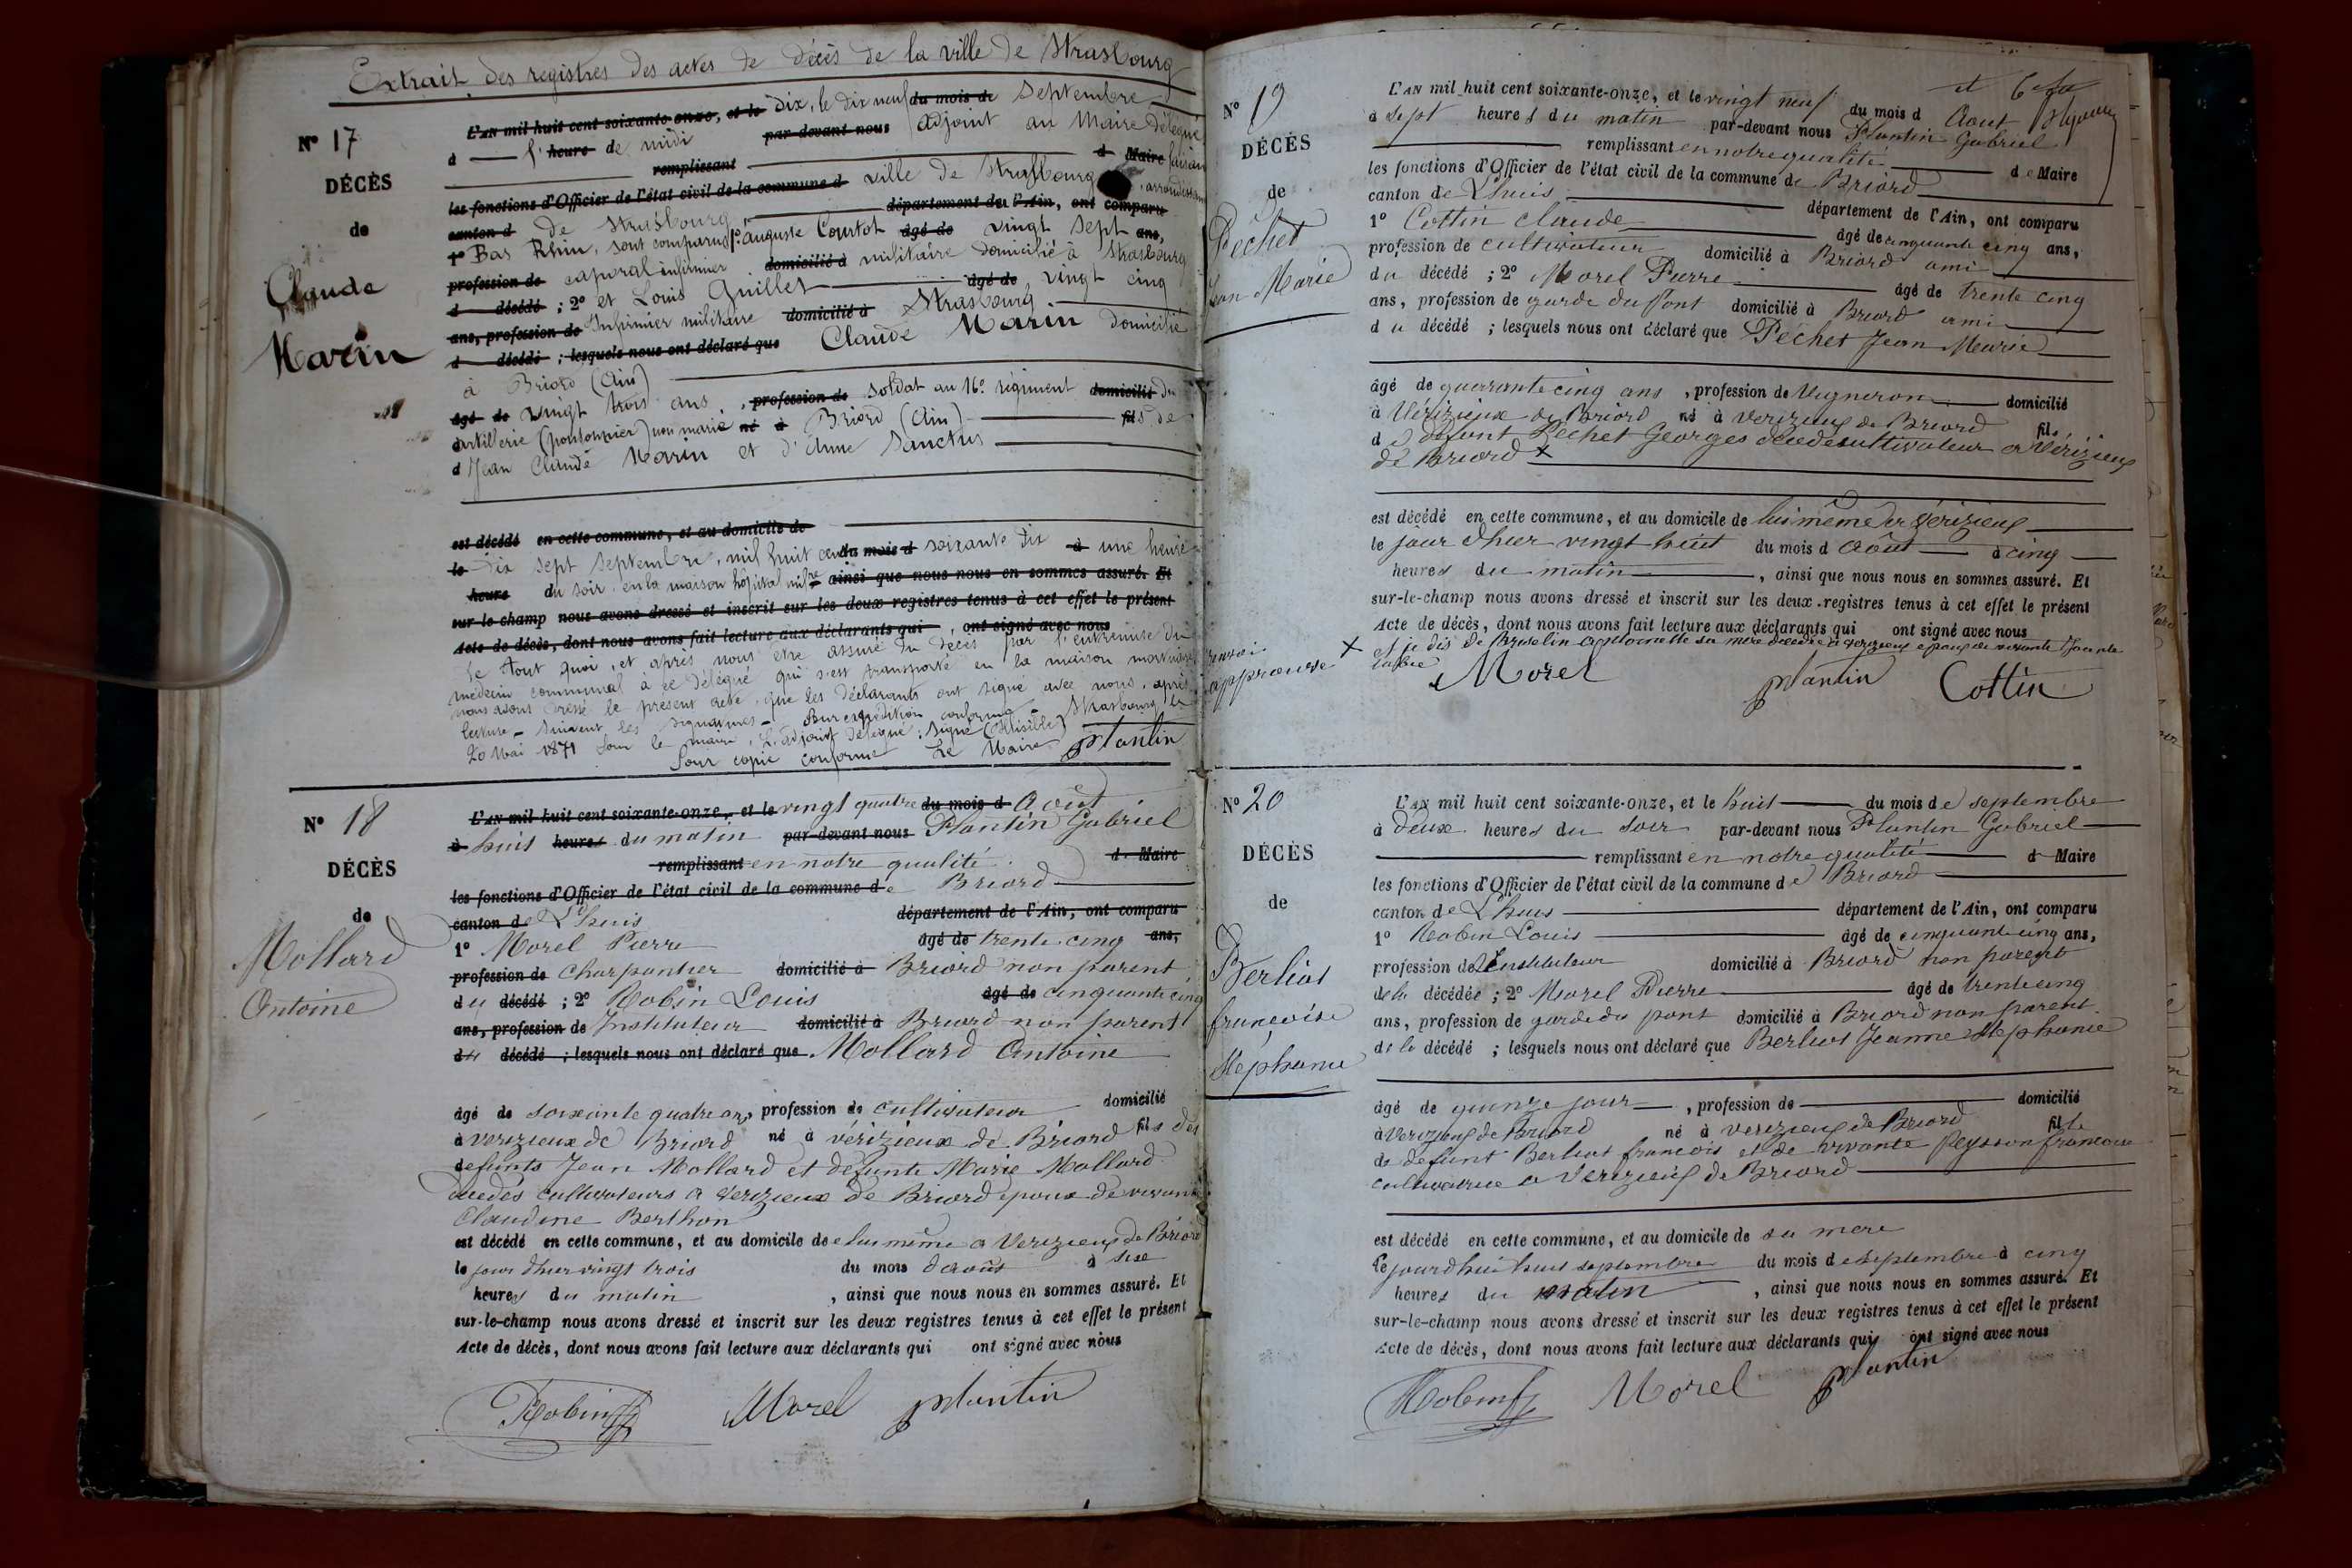 Extrait des registres des actes de décès de la ville de Strasbourg
N° 17
DÉCÈS
de
Claude
Marin
L'AN mil huit cent soixante-onze, et le dix, le dix neuf du mois de Septembre
d l' heure de midi par-devant nous adjoint au Maire délégué
remplissant d Maire faisant
les fonctions d'Officier de l'état civil de la commune d ville de Strasbourg, arrondissem
canton d de Strasbourg, département de l'Ain, ont comparu
1° Bas Rhin, sont comparus 1° Auguste Courtot âgé de vingt sept ans,
profession de caporal infirmier domicilié à militaire domicilié à Strasbourg
d décédé ; 2° et Louis Guillet âgé de vingt cinq
ans, profession de Infirmier militaire domicilié à Strasbourg
d décédé ; lesquels nous ont déclaré que Claude Marin domicilié
à Briord (Ain)
âgé de vingt trois ans, profession de soldat au 16e régiment domicilié du
d'artillerie (pontonnier) non marié né à Briord (Ain) fils de
d Jean Claude Marin et d'Anne Sanctus
est décédé en cette commune, et au domicile de
le dix sept septembre, mil huit cent du mois d soixante dix à une heure
heure du soir en la maison hôpital milre ainsi que nous nous en sommes assuré. Et
sur-le-champ nous avons dressé et inscrit sur les deux registres tenus à cet effet le présent
Acte de décès, dont nous avons fait lecture aux déclarants qui, ont signé avec nous
Le tout quoi, et après nous être assuré du décès par l'entremise du
médecin communal à ce délégué qui s'est transporté en la maison mortuaire
nous avons dressé le présent acte, que les déclarants ont signé avec nous, après
lecture - suivent les signatures - Pour expédition conforme - Strasbourg le
20 Mai 1871 Pour le maire, L'adjoint délégué : signé (Illisible)
Pour copie conforme Le Maire Plantin
N° 18
DÉCÈS
de
Mollard
Antoine
L'AN mil huit cent soixante-onze, et le vingt quatre du mois d Août
à huit heures du matin par-devant nous Plantin Gabriel
remplissant en notre qualité d Maire
les fonctions d'Officier de l'état civil de la commune de Briord
canton de L'huis département de l'Ain, ont comparu
1° Morel Pierre âgé de trente cinq ans,
profession de Charpentier domicilié à Briord non parent
du décédé ; 2° Robin Louis âgé de cinquante cinq
ans, profession de Instituteur domicilié à Briord non parent
du décédé ; lesquels nous ont déclaré que Mollard Antoine
âgé de soixante quatre ans, profession de cultivateur domicilié
à verizieux de Briord né à vérizieux de Briord fils des
defunts Jean Mollard et defunte Marie Mollard
decedes cultivateurs a verizieux de Briord epoux de vivante
Claudine Berthon
est décédé en cette commune, et au domicile de lui même a Verizieux de Briord
le jour d'hier vingt trois du mois d'août à six
heures du matin, ainsi que nous nous en sommes assuré. Et
sur-le-champ nous avons dressé et inscrit sur les deux registres tenus à cet effet le présent
Acte de décès, dont nous avons fait lecture aux déclarants qui ont signé avec nous
Robin Morel Plantin
N° 19
DÉCÈS
de
Péchet
Jean Marie
L'AN mil huit cent soixante-onze, et le vingt neuf du mois d Aout
à sept heures du matin par-devant nous Plantin Gabriel
remplissant en notre qualité de Maire
les fonctions d'Officier de l'état civil de la commune de Briord
canton de L'huis département de l'Ain, ont comparu
1° Cottin claude âgé de cinquante cinq ans,
profession de cultivateur domicilié à Briord ami
du décédé ; 2° Morel Pierre âgé de trente cinq
ans, profession de garde du Pont domicilié à Briord ami
du décédé ; lesquels nous ont déclaré que Péchet Jean Marie
âgé de quarrante cinq ans, profession de Vigneron domicilié
à Vérizieux de Briord né à verizieux de Briord fils
de défunt Péchet Georges décédé cultivateur a Vérizieux
de Briord x
est décédé en cette commune, et au domicile de lui même a Vérizieux
le jour d'hier vingt huit du mois d Août à cinq
heures du matin, ainsi que nous nous en sommes assuré. Et
sur-le-champ nous avons dressé et inscrit sur les deux registres tenus à cet effet le présent
Acte de décès, dont nous avons fait lecture aux déclarants qui ont signé avec nous
renvoi
approuvé x
Morel Plantin Cottin
N° 20
DÉCÈS
de
Berliot
françoise
Stéphanie
L'AN mil huit cent soixante-onze, et le huit du mois de septembre
à deux heures du soir par-devant nous Plantin Gabriel
remplissant en notre qualité d Maire
les fonctions d'Officier de l'état civil de la commune de Briord
canton de L'huis département de l'Ain, ont comparu
1° Robin Louis âgé de cinquante cinq ans,
profession de Instituteur domicilié à Briord non parent
de la décédée ; 2° Morel Pierre âgé de trente cinq
ans, profession de garde du pont domicilié à Briord non parent
de la décédé ; lesquels nous ont déclaré que Berliot Jeanne Stéphanie
âgé de quinze jour, profession de domicilié
à Verizieux de Briord né à verizieux de Briord fille
de defunt Berliot francois et de vivante Peysson francoise
cultivatrice a Verizieux de Briord
est décédé en cette commune, et au domicile de sa mere
le jourd'hui huit septembre du mois de septembre à cinq
heures du matin, ainsi que nous nous en sommes assuré. Et
sur-le-champ nous avons dressé et inscrit sur les deux registres tenus à cet effet le présent
Acte de décès, dont nous avons fait lecture aux déclarants qui ont signé avec nous
Robin Morel Plantin